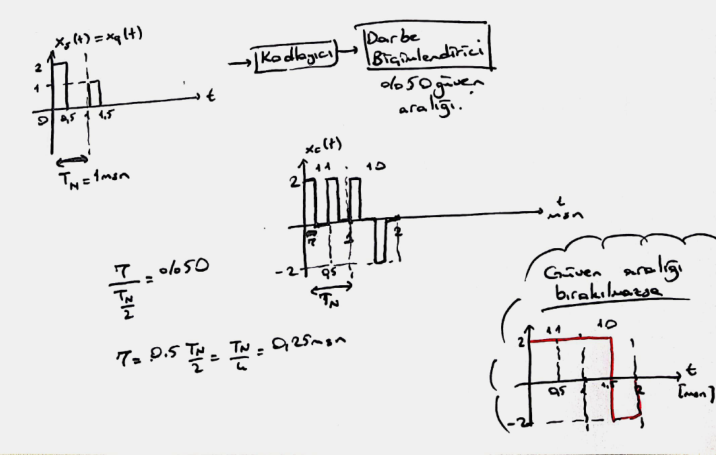 xₛ(t) = x_q(t)
2
1
0 0,5 1 1,5 t
T_N = 1msn
Kodlayıcı
Darbe
Biçimlendirici
%50 güven
aralığı.
x_c(t)
11 10
2
τ 0,5 1 2 t
msn
-2
T_N
τ / (T_N / 2) = %50
τ = 0.5 T_N/2 = T_N/4 = 0,25msn
Güven aralığı
bırakılmazsa
11 10
2
0,5 1 1,5 2 t
[msn]
-2